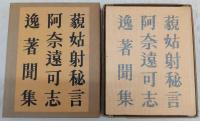 藐姑射秘言
阿奈遠可志
逸著聞集
藐姑射秘言
阿奈遠可志
逸著聞集